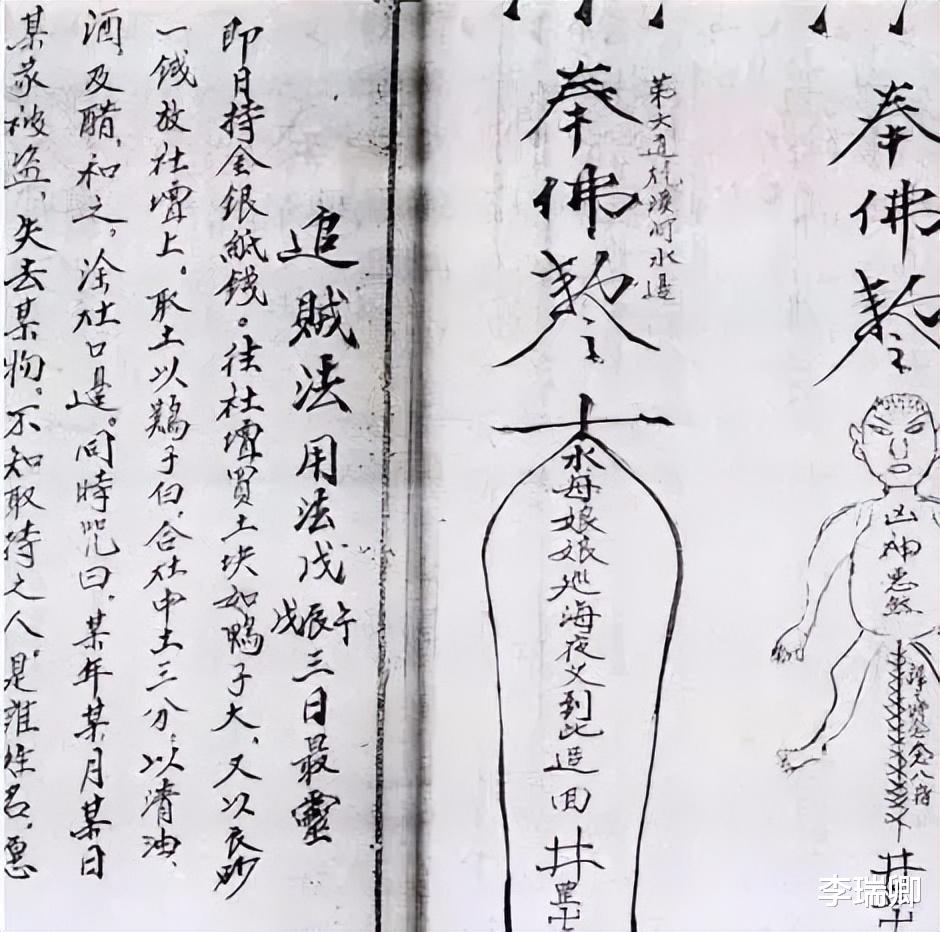 奉佛敕令
凶神惡煞
井
第六道
河水邊
奉佛敕令
水母娘娘巡海夜叉到此追回
井罡
追賊法 用法戊
戊辰午三日最靈
即月持金銀紙錢。往社壇買土塊如鴨子大，又以辰砂
一錢放社壇上。取土以鷄子白，合社中土三分，以清油、
酒及醋，和之。塗社口邊。同時咒曰，某年某月某日
某家被盜，失去某物。不知取持之人。是誰姓名，愿
李瑞卿